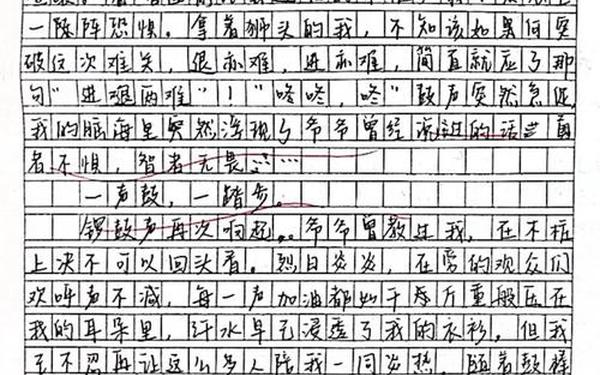 一阵阵恐惧。拿着狮头的我,不知该如果何突
破这次难关,退亦难,进亦难,简直就应了那
句"进退两难"!"咚咚,咚"鼓声突然急促,
我的脑海里突然浮现了爷爷曾经说过的话
者不惧,智者无畏……
一声鼓,一踏步。
锣鼓声再次响起。爷爷曾教过我,在木桩
上决不可以回头看。烈日炎炎,在旁的观众们
欢呼声不减,每一声加油都如千斤重般压在
我的耳朵里,汗水早已浸透了我的衣衫。但我
不忍再让这么多人陪我一同炎热。随着鼓棒